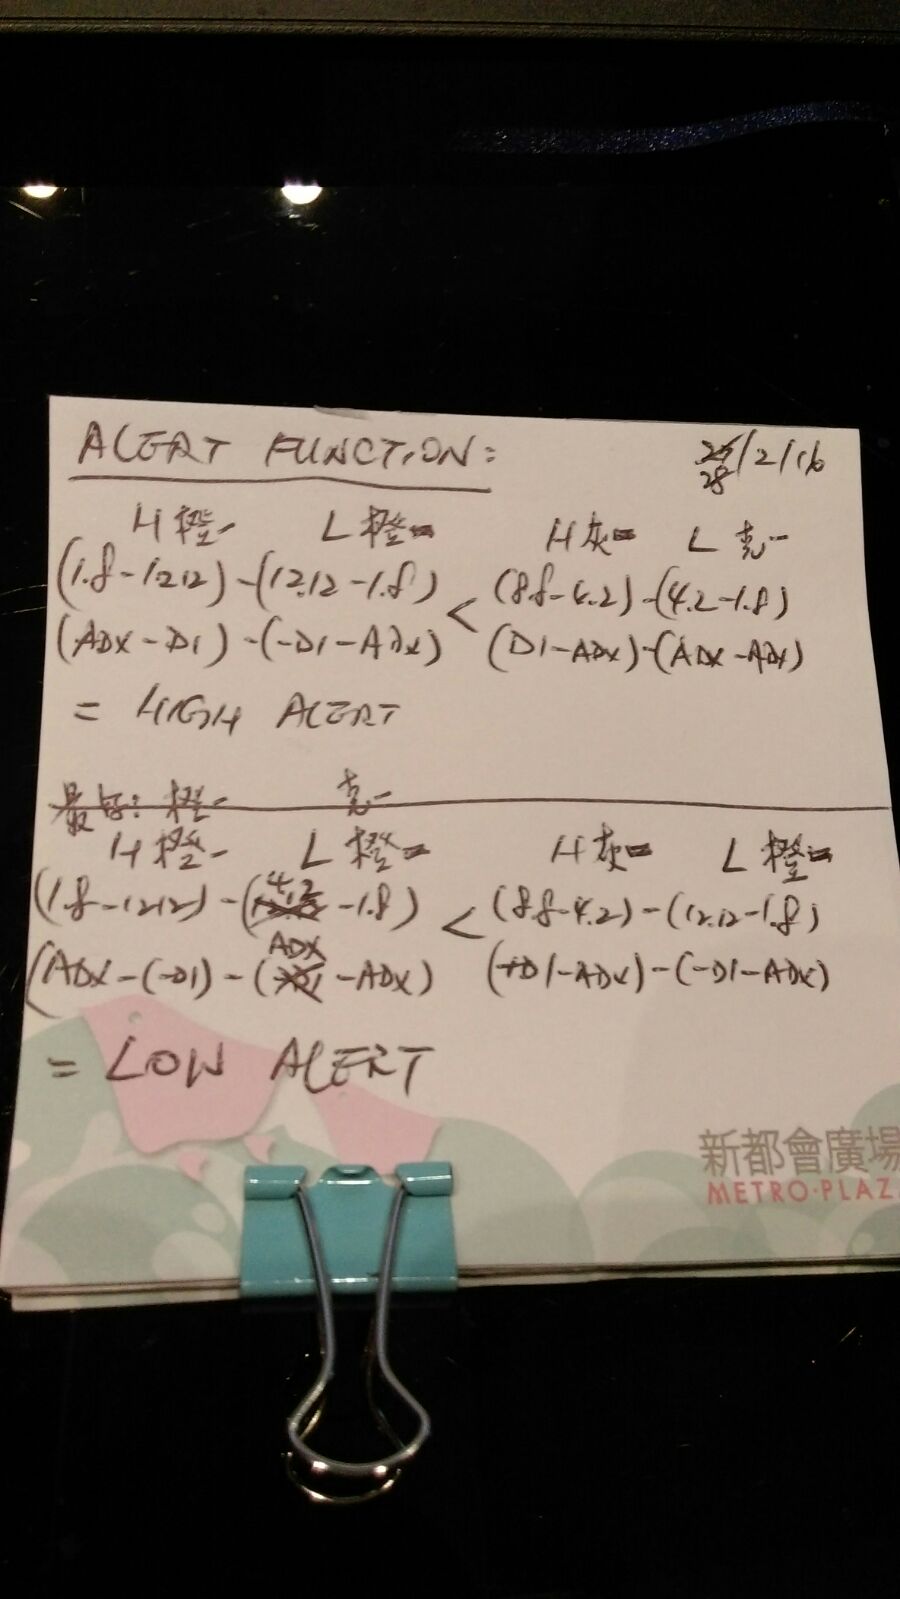 ALERT FUNCTION:
28/2/16
H橙- L橙= H灰= L克-
(1.8-12.12)-(12.12-1.8) < (8.8-4.2)-(4.2-1.8)
(ADX-DI)-(-DI-ADX) (DI-ADX)-(ADX-ADX)
= HIGH ALERT
最后: 橙- 克-
H橙- L橙= H灰= L橙=
(1.8-12.12)-(4.2-1.8) < (8.8-4.2)-(12.12-1.8)
(ADX-(-DI)-(ADX-ADX) (+DI-ADX)-(-DI-ADX)
= LOW ALERT
新都會廣場
METRO·PLAZ